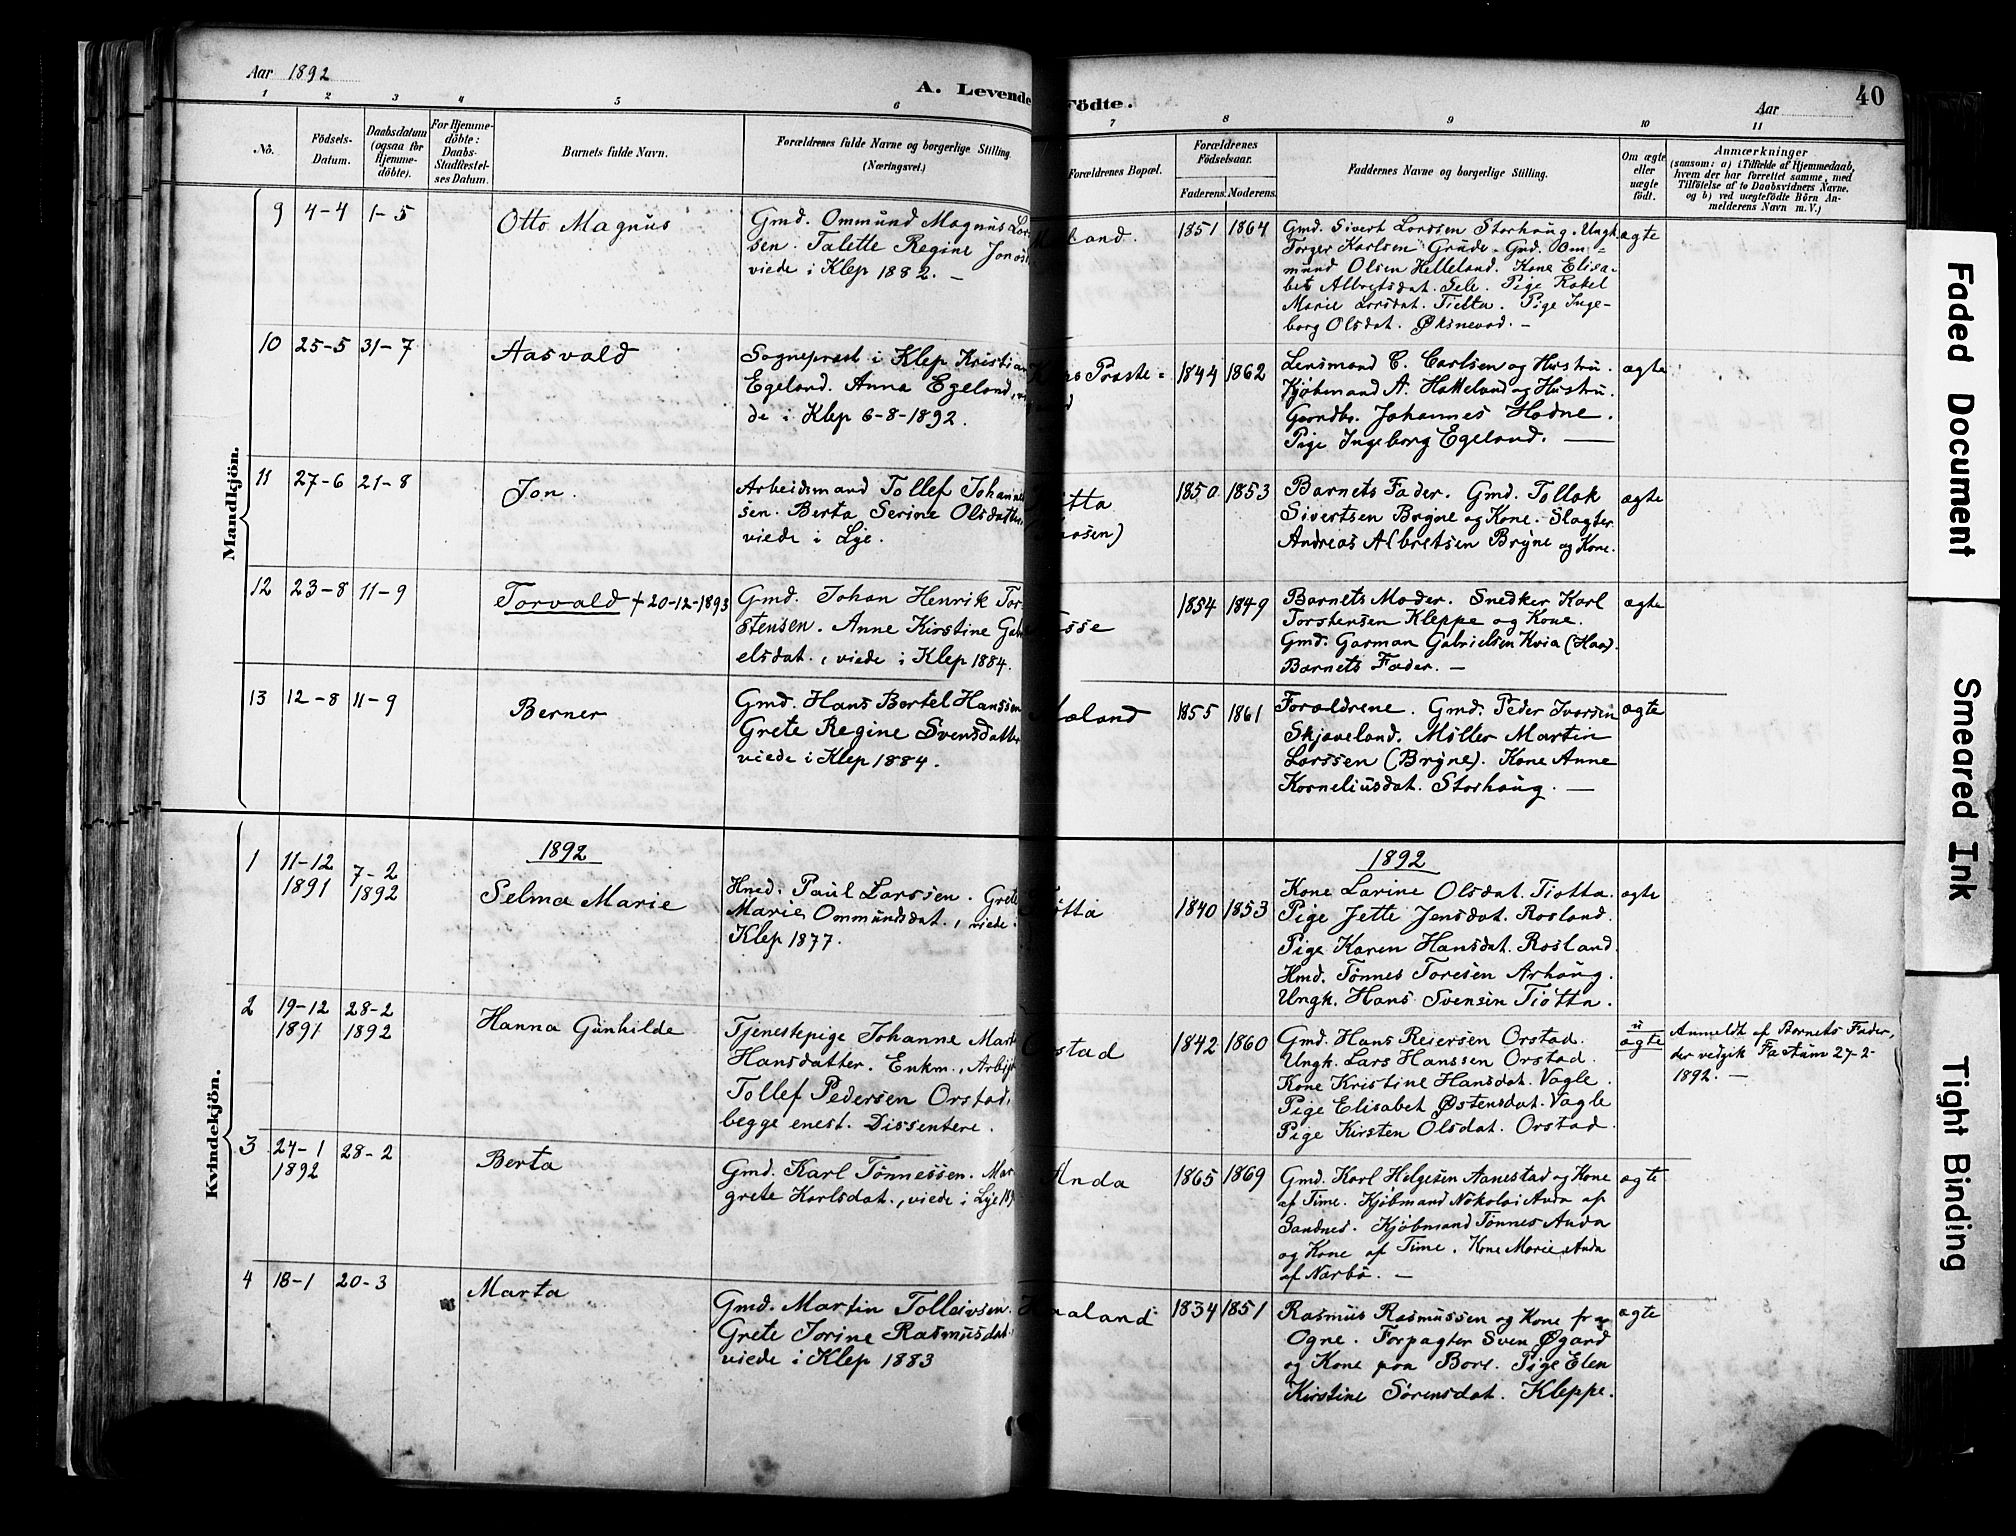 Aar 1892
A. Levende Födte.
Aar
40
1 2 3 4 5 6 7 8 9 10 11
No.
Födsels-Datum.
Daabsdatum (ogsaa for Hjemmedöbte).
For Hjemmedöbte: Daabs-Stadfæstelses Datum.
Barnets fulde Navn.
Forældrenes fulde Navne og borgerlige Stilling (Næringsvei.)
Forældrenes Bopæl.
Forældrenes Födselsaar.
Faderens. Moderens.
Faddernes Navne og borgerlige Stilling.
Om ægte eller uægte födt.
Anmærkninger
(saasom: a) i Tilfælde af Hjemmedaab,
hvem der har forrettet samme, med
Tilföielse af to Daabsvidners Navne.
og b) ved uægtefödte Börn An-
melderens Navn m. V.)
Mandkjön.
9 4-4 1-5 Otto Magnus
Gmd. Ommund Magnus Lar
sen. Talette Regine Jonas
viede i Klep 1882. —
land.
1851 1864
Gmd. Sivert Larssen Storhaug. Ungk
Torger Karlsen Grude. Gmd. Om=
mund Olsen Helleland. Kone Elisa-
bet Albretsdat. Sele. Pige Rakel
Marie Larsdat. Tjelta. Pige Inge-
borg Olsdat. Øksnevad. —
ægte
10 25-5 31-7 Aasvald
Sogneprest i Klep Kristian
Egeland. Anna Egeland, vi
de i Klep 6-8-1892.
Præste=
1844 1862
Lensmand C. Carlsen og Hustru.
Kjøbmand A. Hatteland og Hustru.
Gaardbr. Johannes Hodne.
Pige Ingeborg Egeland. —
ægte
11 27-6 21-8 Jon.
Arbeidsmand Tollef Johannes
sen. Berta Serine Olsdatter,
viede i Lye.
tta
sen)
1850 1853
Barnets Fader. Gmd. Tollak
Sivertsen Bryne og Kone. Slagter
Andreas Albretsen Bryne og Kone.
ægte
12 23-8 11-9 Torvald + 20-12-1893
Gmd. Johan Henrik Tor
stensen. Anne Kirstine Gab
elsdat., viede i Klep 1884.
sse
1854 1849
Barnets Moder. Snedker Karl
Torstensen Kleppe og Kone.
Gmd. Garman Gabrielsen Kvia (Haa).
Barnets Fader. —
ægte
13 12-8 11-9 Berner
Gmd. Hans Bertel Hanssen
Grete Regine Svensdatter
viede i Klep 1884.
land
1855 1861
Forældrene. Gmd. Peder Ivarsen
Skjæveland. Møller Martin
Larssen (Bryne). Kone Anne
Korneliusdat. Storhaug. —
ægte
Kvindekjön.
1892
1892
1 11-12 1891 7-2 1892 Selma Marie
Hmd. Paul Larssen. Grete
Marie Ommundsdat., viede.
Klep 1877.
tta
1840 1853
Kone Larine Olsdat. Tjøtta.
Pige Jette Jensdat. Rosland.
Pige Karen Hansdat. Rosland.
Hmd. Tønnes Toresen Arhaug.
Ungk. Hans Svensen Tjøtta.
ægte
2 19-12 1891 28-2 1892 Hanna Gunhilde
Tjenestepige Johanne Mart
Hansdatter. Enkm., Arbejd
Tollef Pedersen Orstad,
begge enest. Dissentere.
Orstad
1842 1860
Gmd. Hans Reiersen Orstad.
Ungk. Lars Hanssen Orstad.
Kone Kristine Hansdat. Vagle.
Pige Elisabet Østensdat. Vagle
Pige Kirsten Olsdat. Orstad.
u
ægte
Anmeldt af Barnets Fader,
der vedgik Factum 27-2-
1892. —
3 24-1 1892 28-2 Berta
Gmd. Karl Tønnessen. Mar
grete Karlsdat., viede i Lye 18
Anda
1865 1869
Gmd. Karl Helgesen Aanestad og Kone
af Time. Kjøbmand Nikolai Anda af
Sandnes. Kjøbmand Tønnes Anda
og Kone af Time. Kone Marie Anda
af Nærbø. —
ægte
4 18-1 20-3 Marta
Gmd. Martin Tolleivsen.
Grete Jorine Rasmusdat.
viede i Klep 1883
aaland
1834 1851
Rasmus Rasmussen og Kone fra
Ogne. Forpagter Sven Øgard
og Kone paa Bore. Pige Elen
Kirstine Sørensdat. Kleppe.
ægte
Faded Document
Smeared Ink
Tight Binding